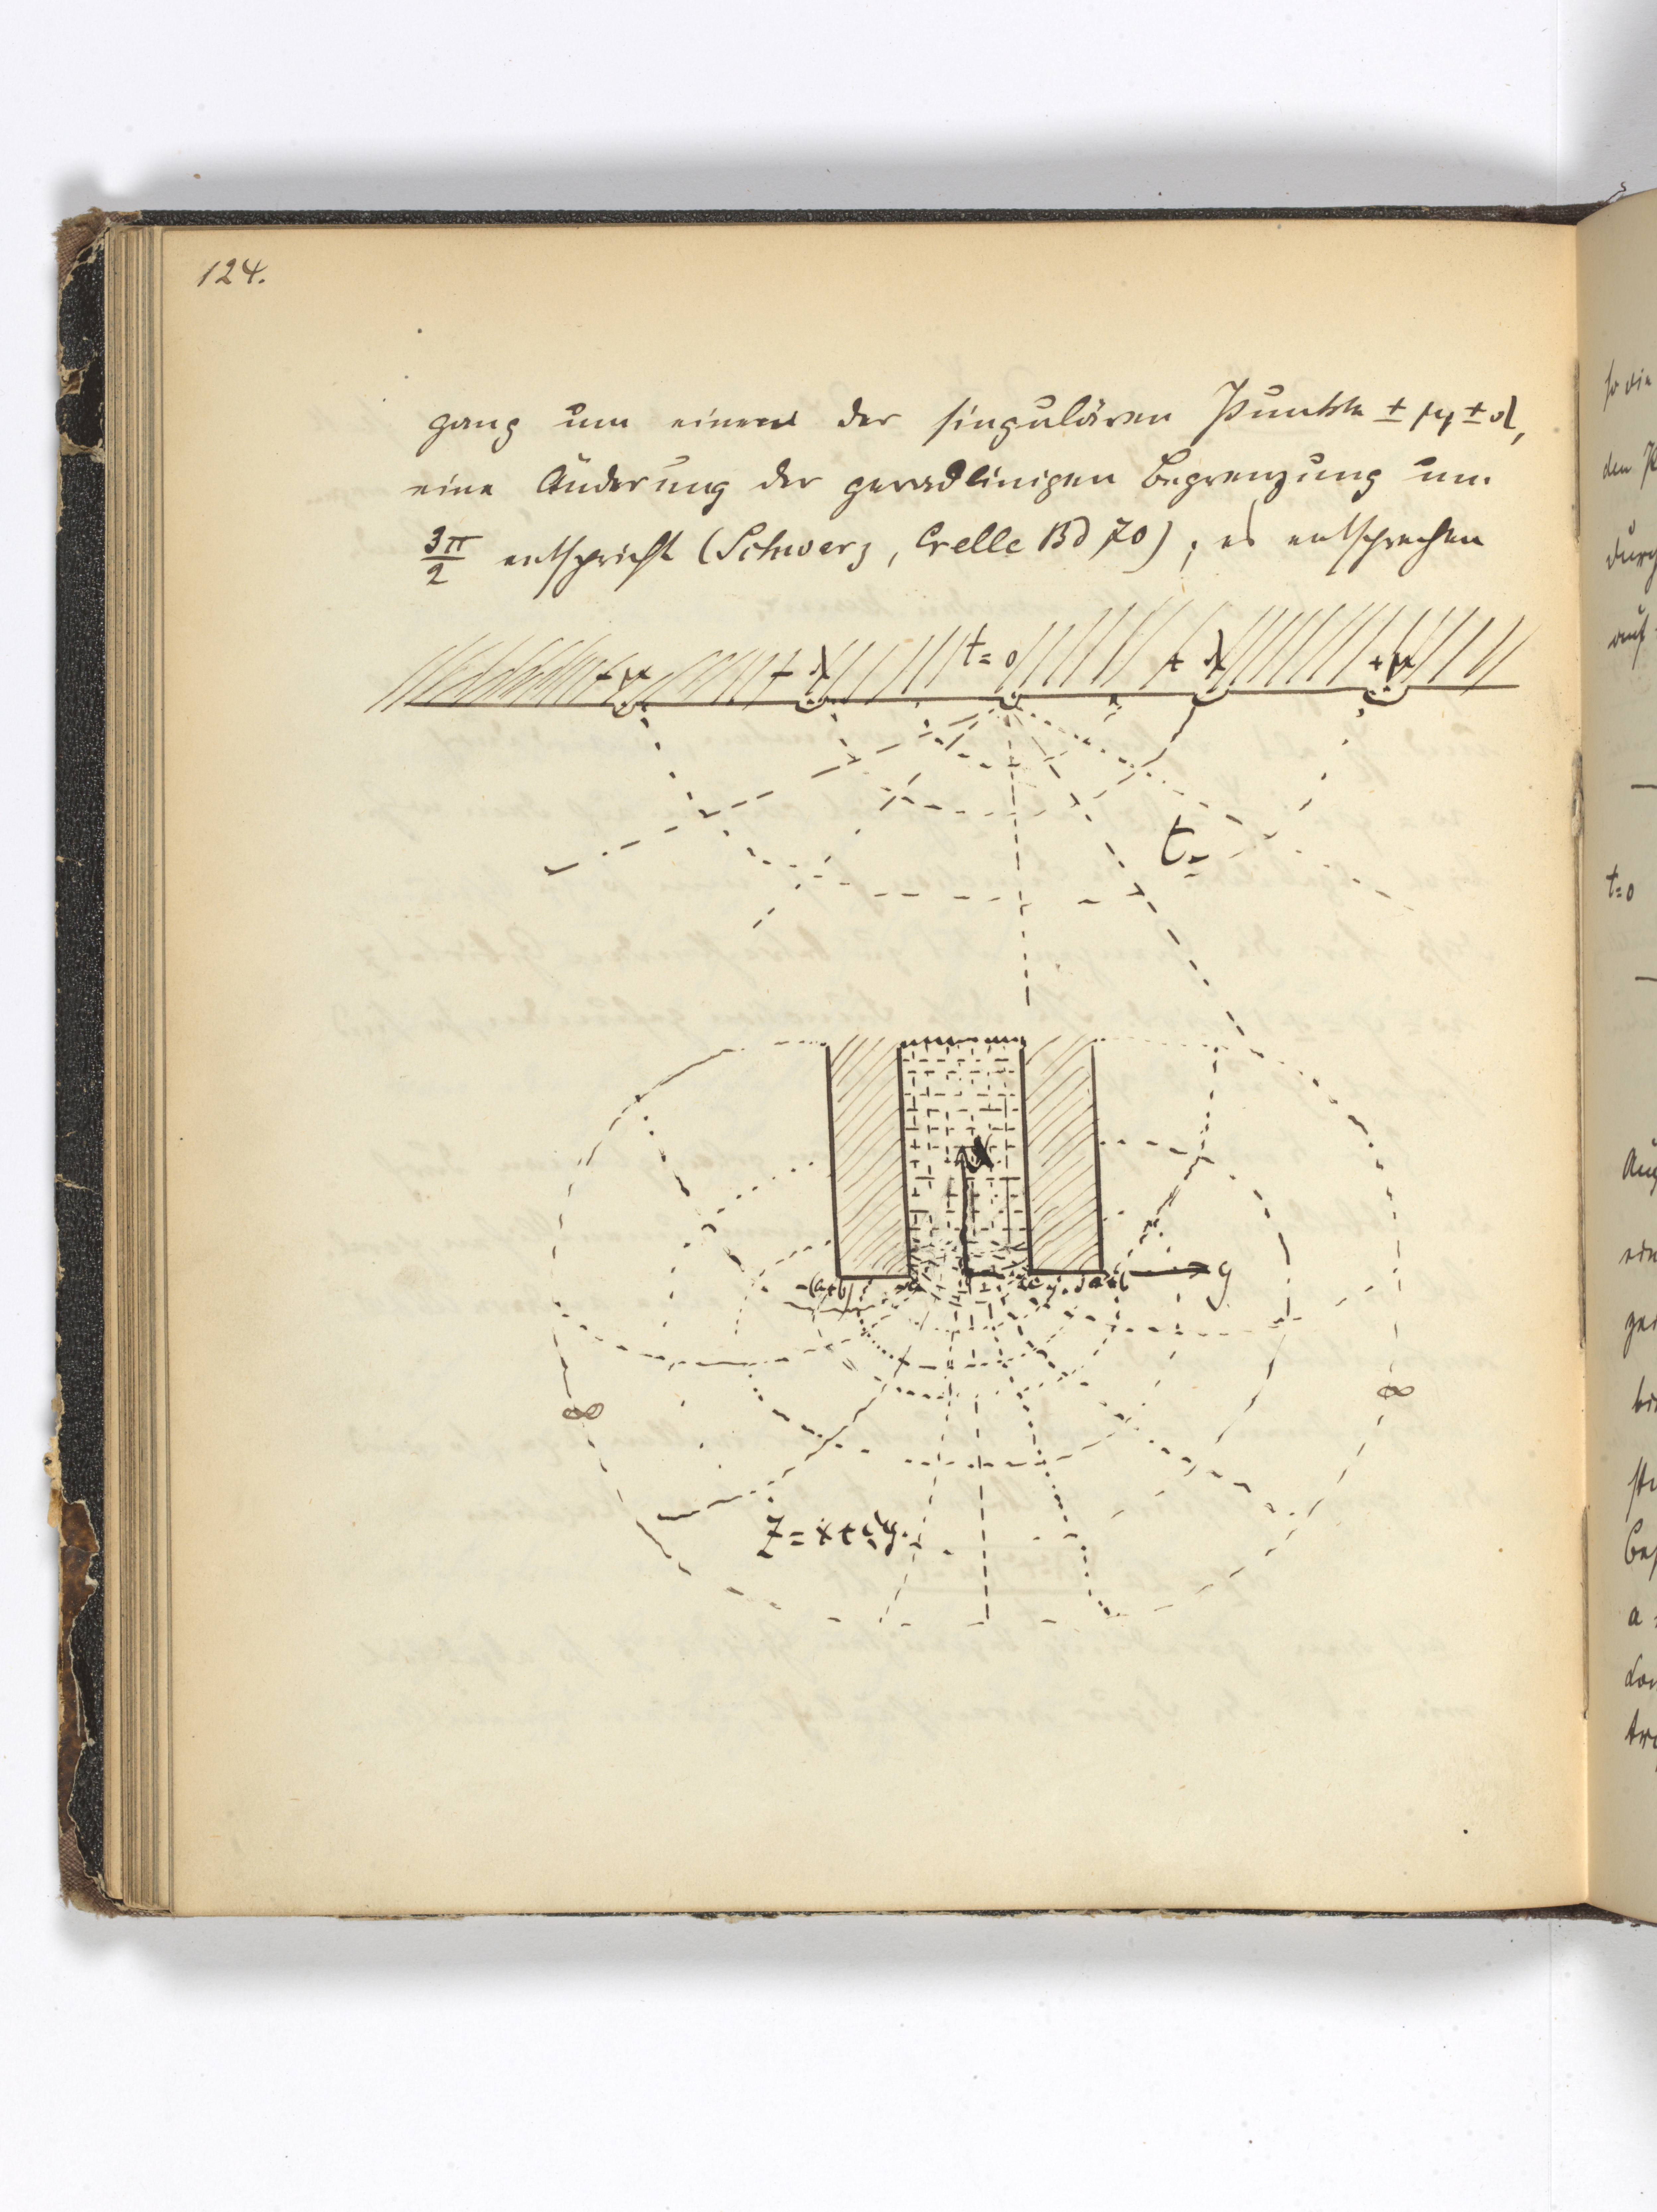 124.
gang um einen der singulären Punkte ± μ, ± λ,
eine Änderung der geradlinigen Begrenzung um
3π/2 entspricht (Schwarz, Crelle Bd 70); es entsprechen
- μ - λ t=0 + λ + μ
t
x
-(a+b) -a +a a+b y
∞ ∞
z=x+iy.
so die
den
durch
auf
t=0